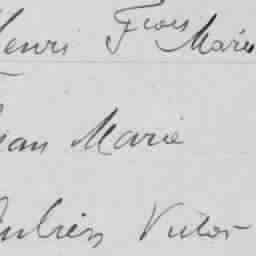 Henri Frois Marie
Jean Marie
Julien Victor